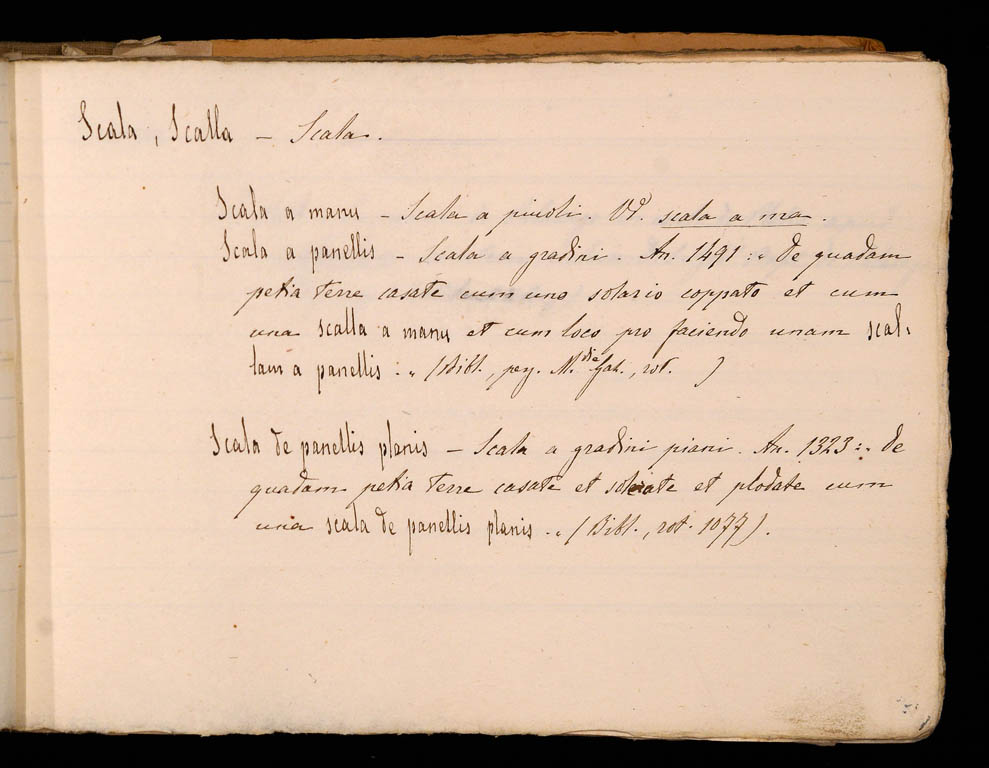 Scala, Scalla – Scala.
Scala a manu – Scala a piuoli. Vd. scala a ma.
Scala a panellis – Scala a gradini. An. 1491: „ De quadam
petia terre casate cum uno solario coppato et cum
una scalla a manu et cum loco pro faciendo unam scal-
lam a panellis : „ (Bibl., perg. M. Gat., rot. )
Scala de panellis planis – Scala a gradini piani. An. 1323: „ de
quadam petia terre casate et soleate et plodate cum
una scala de panellis planis. „ (Bibl., rot. 1077).